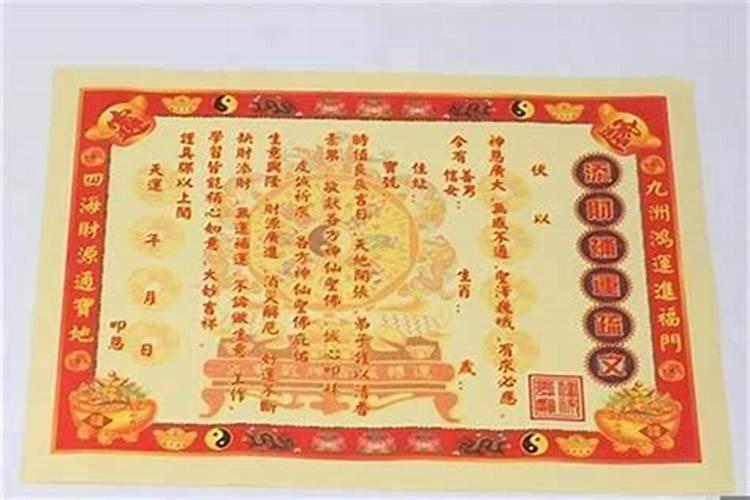 九洲鴻運進福門
添財補運疏文
伏以
神恩廣大 無感不通 聖澤巍峨 有求必應
今有 善男 信女 生肖 歲
住址
寶號
時值良辰吉日 天地開張 弟子謹以清香
素果 敬獻各方神仙聖佛 誠心叩拜
虔誠祈求 各方神仙聖佛庇佑
生意興隆 財源廣進 消災解厄 好運不斷
缺財添財 無運補運 不論做生意 工作
學習皆能稱心如意 大妙吉祥
謹具疏以上聞
天運 年 月 日
叩恩
四海財源通寶地